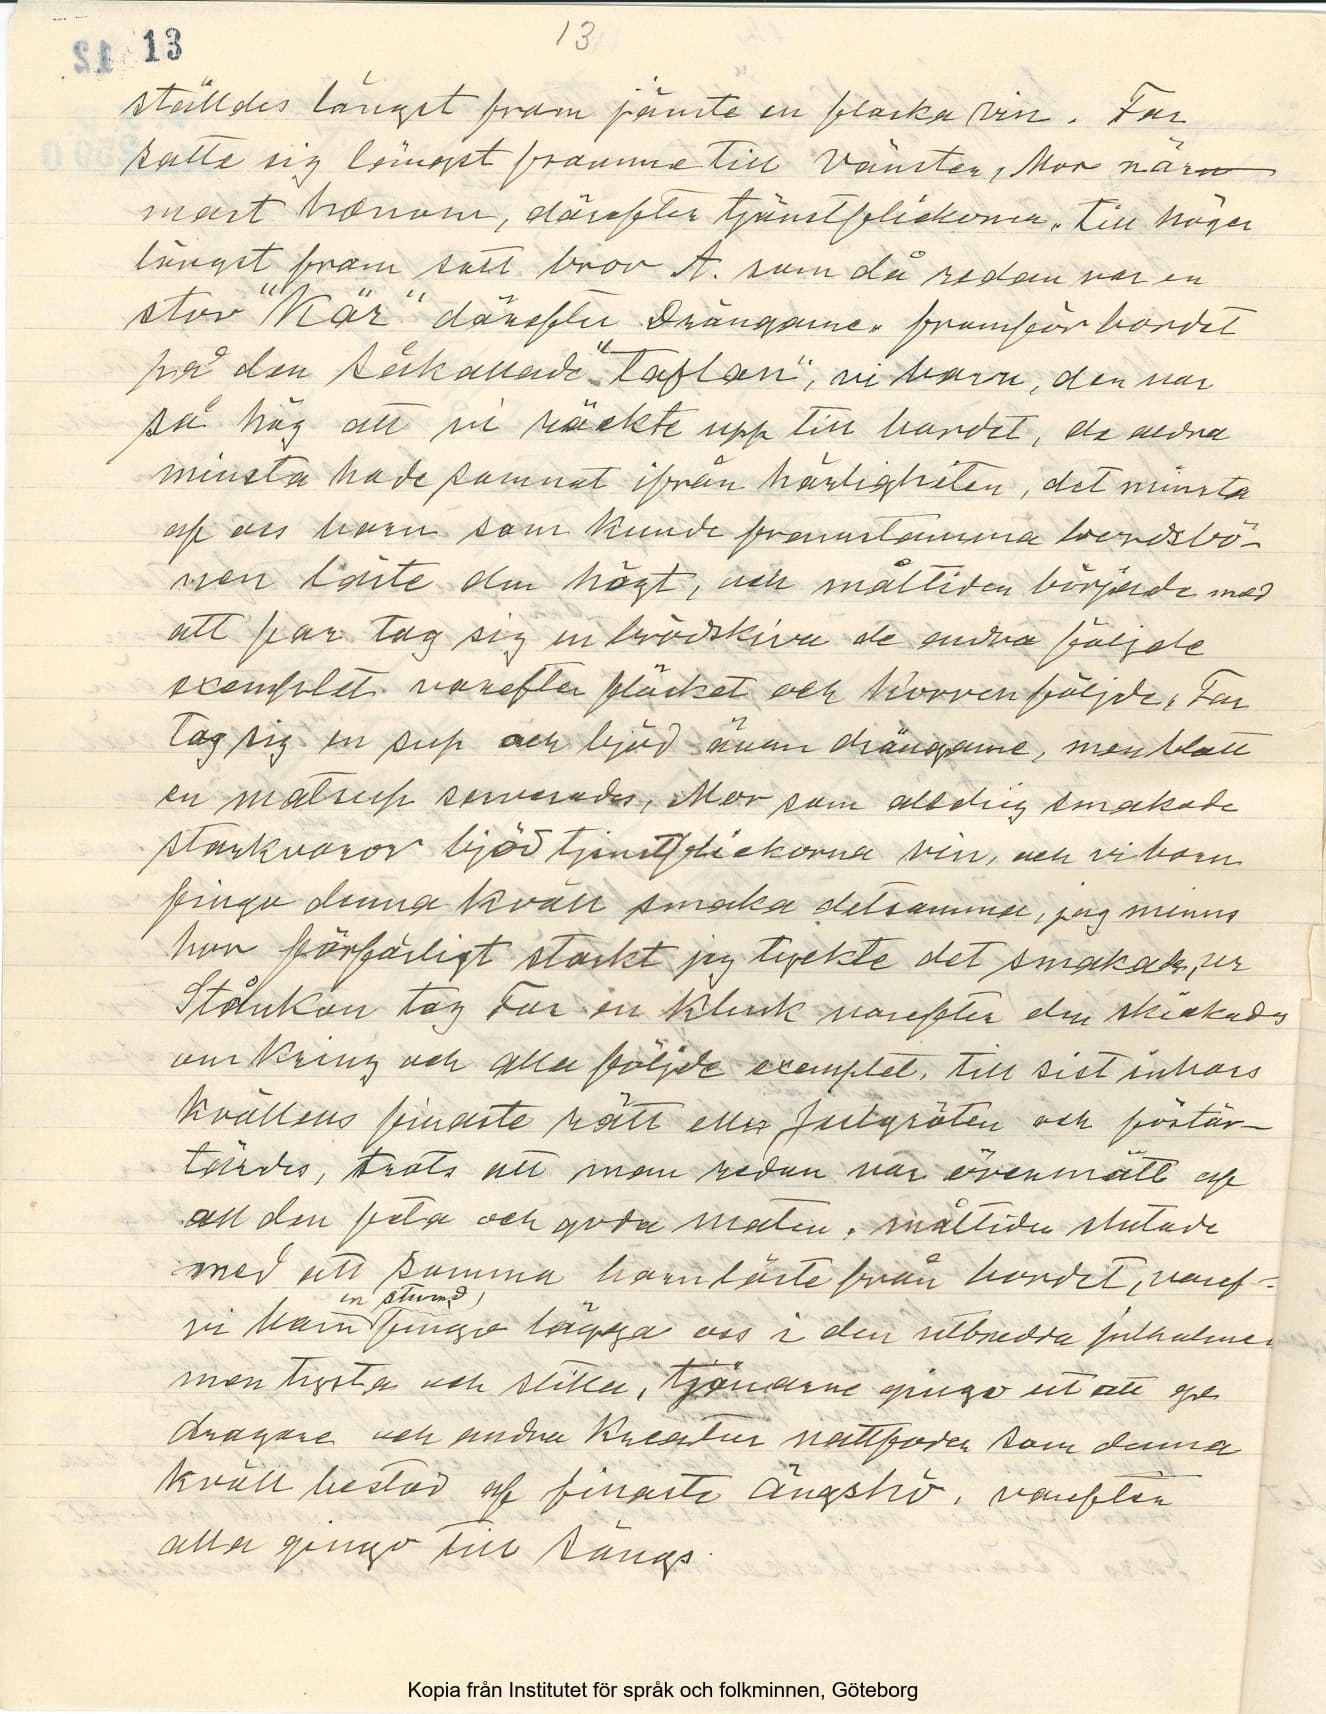 13
13
ställdes längst fram jämte en flaska vin. Far
satte sig längst framme till Vänster, Mor närn
mast honom, därefter tjänstflickorna. till höger
längst fram satt bror A. som då redan var en
stor "Kär" därefter Drängarne. framför bordet
på den såkallade "Taflan", vi barn, den var
så hög att vi räckte upp till bordet, de aldra
minsta hade somnat ifrån härligheten, det minsta
af oss barn som kunde framstamma bordsbö-
nen läste den högt, och måltiden började med
att far tog sig en brödskiva de andra följde
exemplet. varefter fläsket och Korven följde, Far
tog sig en sup och bjöd även drängarne, men blott
en matsup serverades, Mor som alldrig smakade
starkvaror bjöd tjenstflickorna vin, och vi barn
fingo denna kväll smaka detsamma, jag minns
hur förfärligt starkt jag tyckte det smakade, ur
Stånkan tog Far en klunk varefter den skickades
omkring och alla följde exemplet. till sist inbars
kvällens finaste rätt eller Julgröten och förtär-
tärdes, trots att man redan var övermätt af
all den feta och goda maten. måltiden slutade
med att samma barn läste från bordet, varef-
en stund,
vi barn fingo lägga oss i den utbredda julhalmen
men tysta och stilla, tjänarne gingo ut att ge
dragare och andra kreatur nattfoder som denna
kväll bestod af finaste Ängshö, varefter
alla gingo till sängs.
Kopia från Institutet för språk och folkminnen, Göteborg